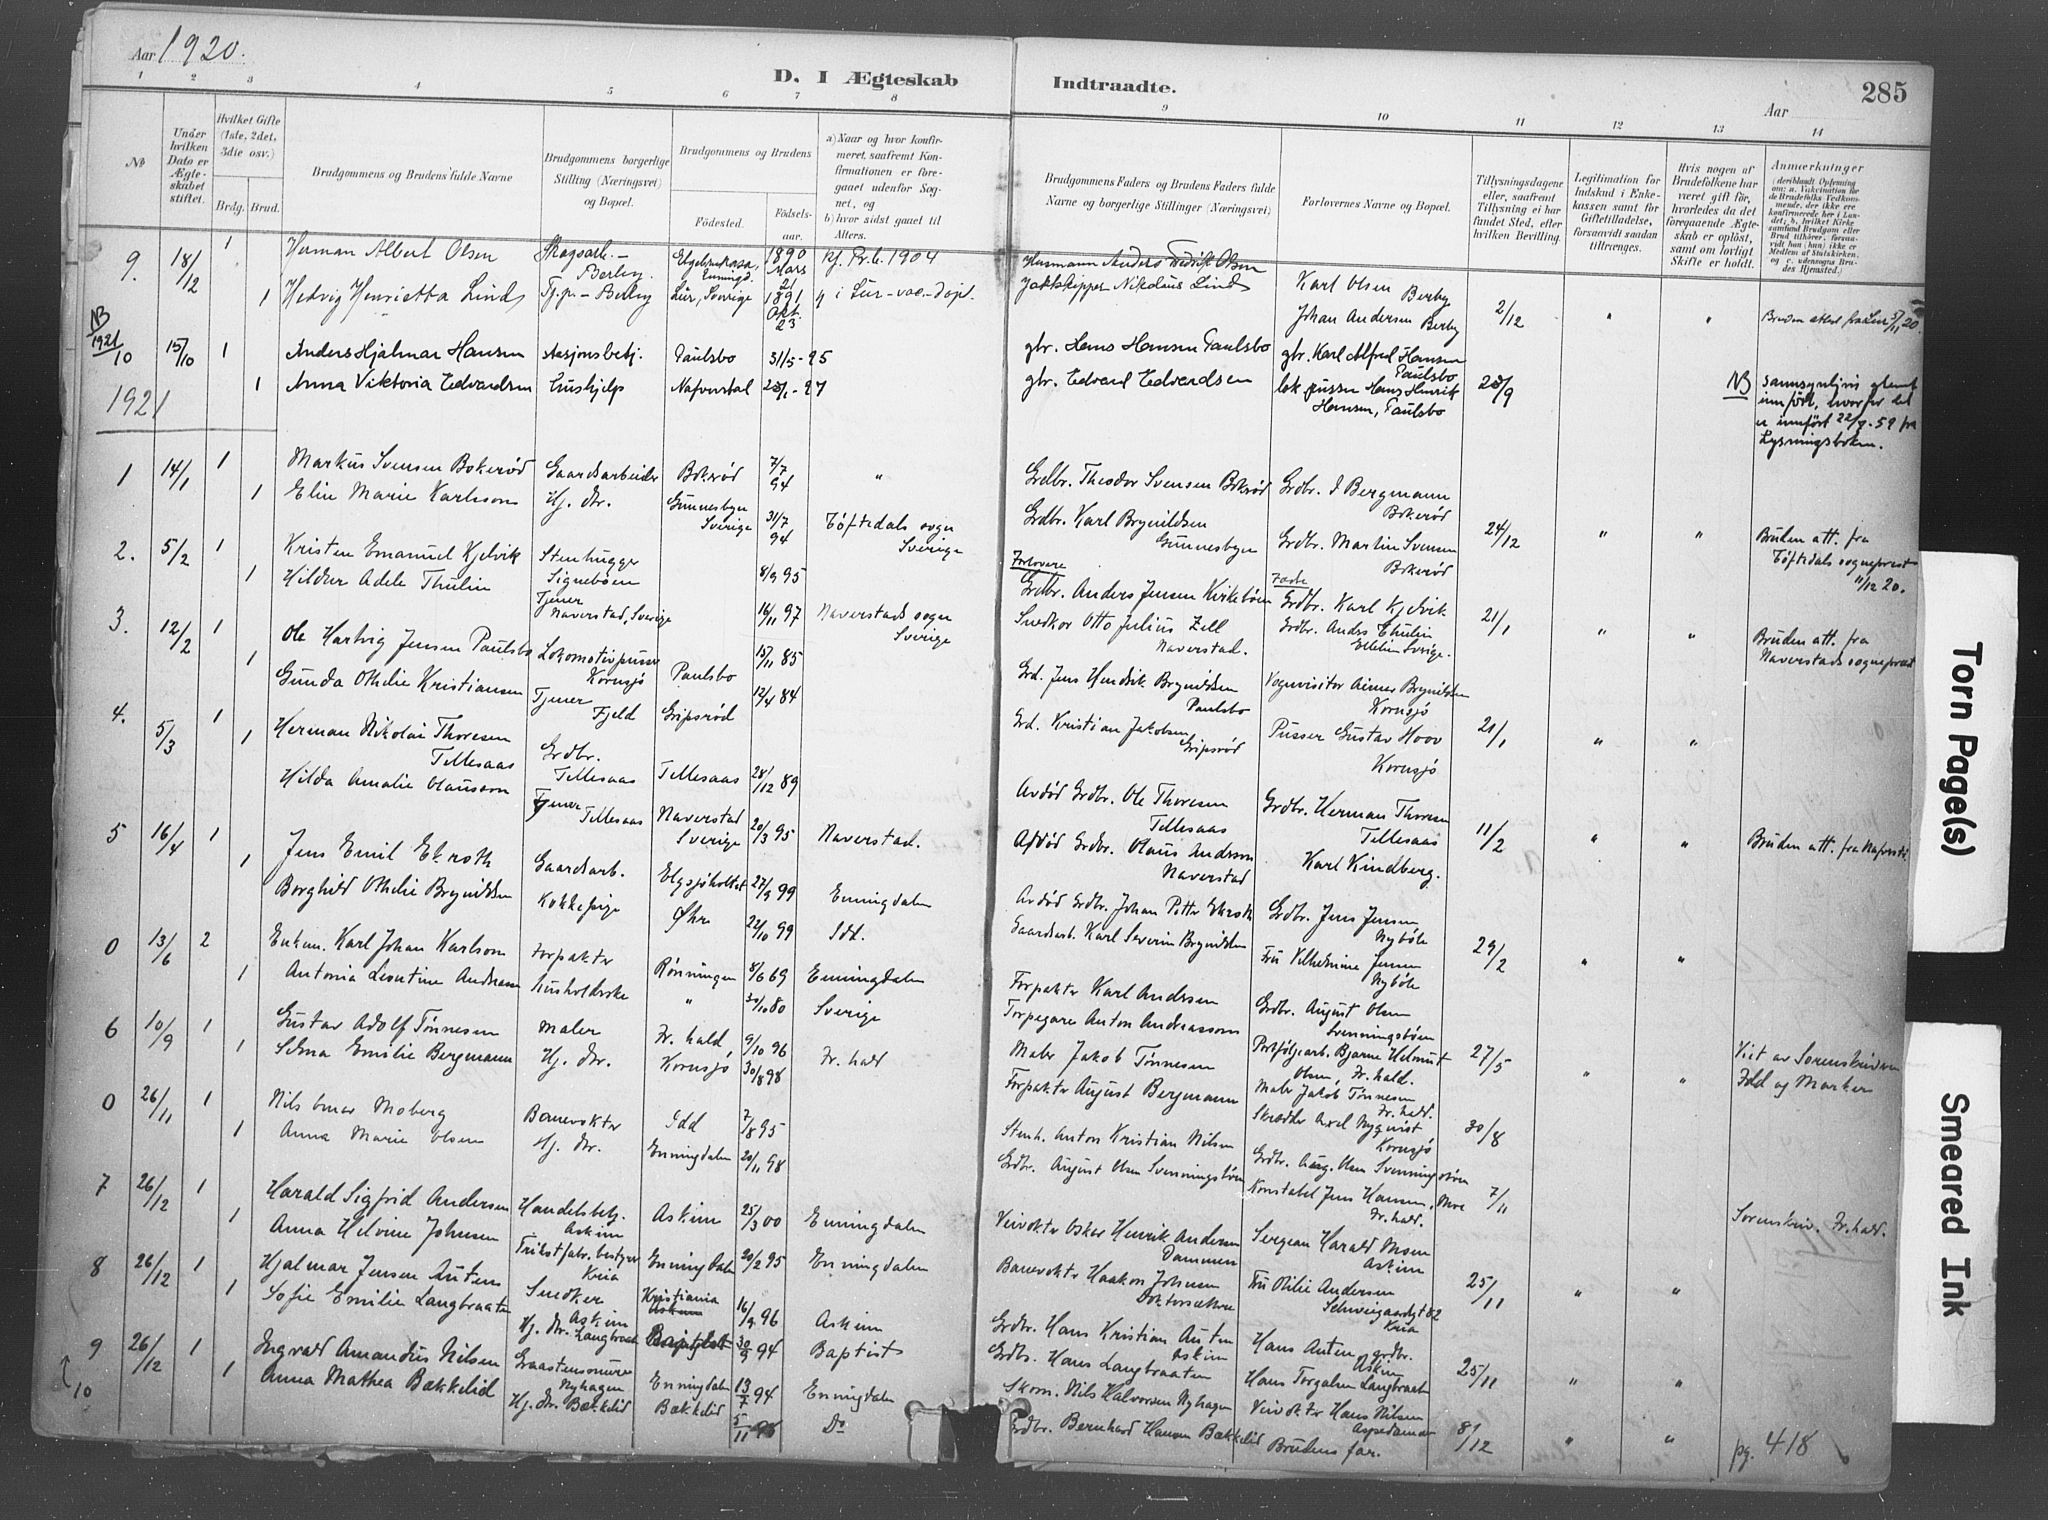 Aar 1920.
D. I Ægteskab
Indtraadte.
Aar
285
1 2 3 4 5 6 7 8 9 10 11 12 13 14
No
Under hvilken Dato er Ægte-skabet stiftet.
Hvilket Gifte (1ste, 2det, 3die osv.)
Brdg. Brud.
Brudgommens og Brudens fulde Navne
Brudgommens borgerlige Stilling (Næringsvei) og Bopæl.
Brudgommens og Brudens
Födested.
Födsels-aar.
a) Naar og hvor konfir-meret, saafremt Kon-firmationen er fore-gaaet udenfor Sog-net, og
b) hvor sidst gaaet til Alters.
Brudgommens Faders og Brudens Faders fulde Navne og borgerlige Stillinger (Næringsvei)
Forlovernes Navne og Bopæl.
Tillysningsdagene eller, saafremt Tillysning ei har fundet Sted, efter hvilken Bevilling.
Legitimation for Indskud i Enke-kassen samt for Giftetilladelse, forsaavidt saadan tiltrænges.
Hvis nogen af Brudefolkene har været gift för, hvorledes da det foregaaende Ægte-skab er oplöst, samt om lovligt Skifte er holdt.
Anmærkninger
9. 18/12 1 Herman Albert Olsen Skogsarb. - Berby. 1890 Mars 21 kf. Pr.b. 1904 Husmann Anders Fredrik Olsen Karl Olsen Berby
1 Hedvig Henrietta Lind Tj.p. - Berby Lur, Sverige 1891 Okt. 23 Jaktskipper Nikolaus Lind Johan Andersen Berby 2/12 " "
NB 1921
10 15/10 1 Anders Hjalmar Hansen Paulsbo 31/5-95 gbr. Hans Hansen Paulsbo gbr. Karl Alfred Hansen Paulsbo
1 Anna Viktoria Edvardsen Hushjelp gbr. Edvard Edvardsen lok.pusser Hans Henrik Hansen, Paulsbo NB sannsynligvis glemt innført, hvorfor det er innført 22/9.59 fra Lysningsboken.
1921
1 14/1 1 Markus Svensen Bokerød Gaardsarbeider Bokerød 7/7 94 " Grdbr. Theodor Svensen Bokerød Grdbr. J Bergmann Bokerød
1 Elin Marie Karlsson Hj. dtr. Gunnesbyn Sverige 31/7 94 Töftedals sogn Sverige Grdbr. Karl Brynildsen Gunnesbyn Grdbr. Martin Svensen Bokerød 24/12 " " Bruden att. fra Töftedals sogneprest 11/12 20.
2. 5/2 1 Kristen Emanuel Kjelvik Stenhugger Signebøen 8/9 95 Forlovere Grdbr. Anders Jensen Kirkebøen Fædre Grdbr. Karl Kjelvik
1 Hildur Adele Thulin Tjener Naverstad, Sverige 16/11 97 Naverstads sogn Sverige Snedker Otto Julius Zell Naverstad. Grdbr. Anders Thulin Sverige. 21/1 " " Bruden att. fra Naverstads sogneprest
3. 12/2 1 Ole Hartvig Jensen Paulsbo Lokomotivpusser Kornsjø Paulsbo 15/11 85 Grd. Jens Hendrik Brynildsen Paulsbo Vognvisitør Brynildsen Kornsjø
1 Gunda Othilie Kristiansen Tjener Fjeld Gripsrød 12/4 84 Grd. Kristian Jakobsen Gripsrød Pusser Gustav Hoov Kornsjø 21/1 " "
4. 5/3 1 Herman Nikolai Thoresen Tillesaas Grdbr. Tillesaas Tillesaas 28/12 89 Avdød Grdbr. Ole Thoresen Tillesaas Grdbr. Herman Thoresen Tillesaas
1 Hilda Amalie Olausson Tjener Tillesaas Naverstad Sverige 20/3 95 Naverstad. Avdød Grdbr. Olaus Andersson Naverstad Karl Kindberg. 11/2 " " Bruden att. fra Naverst.
5 16/4 1 Jens Emil Ekroth Gaardsarb. Elgsjøholtet 27/9 99 Enningdalen Avdød Grdbr. Johan Petter Ekroth Grdbr. Jens Jensen Nybøle
1 Borghild Othilie Brynildsen Kokkepige Øhre 22/10 99 Idd. Gaardsarb. Karl Severin Brynildsen Fru Vilhelmine Jensen Nybøle 29/2 " "
0 13/6 2 Enkem. Karl Johan Karlson Forpakter Rønningen 8/6 69 Enningdalen Forpakter Karl Andersen Grdbr. August Olsen Svenningsbøen
1 Antonia Leontine Andreassen Husholderske " 30/10 80 Sverige Torpegare Anton Andreassom Bjarne Helmut Olsen, Fr.hald. 27/5 " " Viet av Sorenskriveren Idd og Marker
6 10/9 1 Gustav Adolf Tønnesen Maler Fr.hald 9/10 96 Fr.hald Maler Jakob Tønnesen Maler Jakob Tønnesen Fr.hald.
1 Selma Emilie Bergmann Hj. dtr. Kornsjø 30/8 98 Forpakter August Bergmann Skrædder Axel Nyqvist Kornsjø 30/8
0 26/11 1 Nils Moberg Banevokter Idd 7/8 95 Stenh. Anton Kristian Nilsen Grdbr. Aug. Olsen Svenningsbøen
1 Anna Marie Olsen Hj. dtr. Enningdalen 20/11 98 Grdbr. August Olsen Svenningsbøen Konstabel Jens Hansen, Moe Fr.hald. 7/11 Sorenskriv. Fr.hald.
7 26/12 1 Harald Sigfrid Andersen Handelsbetj. Askim Askim 25/3 00 Enningdalen Veivokter Oskar Henrik Andersen Dammen Sergean Harald Moen Askim
1 Anna Helvine Johnsen Trikotfabr. bestyrer Kria Enningdalen 20/2 95 Enningdalen Banevokter Haakon Johnsen Fru Otilie Andersen Schweigaardsgt 82 Kria 25/11 " "
8 26/12 1 Hjalmar Jensen Auten Snedker Askim Kristiania Askim 16/9 96 Askim Grdbr. Hans Kristian Auten Askim Hans Auten, grdbr. Askim
1 Sofie Emilie Langbraaten Hj. dtr. Langbraaten 30/9 94 Baptist Grdbr. Hans Langbraaten Hans Torgalsen Langbraaten 25/11 " "
9 26/12 1 Ingvald Amandus Nilsen Graastensmurer Nyhagen Enningdalen 13/7 94 Enningdalen Skom. Nils Halvorsen Nyhagen Veivokter Hans Nilsen Aspedammen
10 1 Anna Mathea Bækkelid Hj. dtr. Bækkelid Bækkelid Do Grdbr. Bernhard Hansen Bækkelid Brudens far. " " pg. 418
Torn Page(s)
Smeared Ink